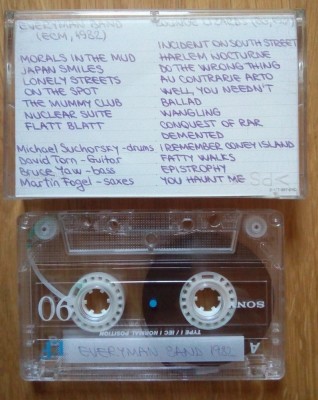 EVERYMAN BAND
(ECM, 1982)
MORALS IN THE MUD
JAPAN SMILES
LONELY STREETS
ON THE SPOT
THE MUMMY CLUB
NUCLEAR SUITE
FLATT BLATT
Michael Suchorsky - drums
David Torn - Guitar
Bruce Yaw - bass
Martin Fogel - saxes
LOUNGE LIZARDS
INCIDENT ON SOUTH STREET
HARLEM NOCTURNE
DO THE WRONG THING
AU CONTRARIE ARTO
WELL, YOU NEEDN'T
BALLAD
WANGLING
CONQUEST OF RAR
DEMENTED
I REMEMBER CONEY ISLAND
FATTY WALKS
EPISTROPHY
YOU HAUNT ME
90
SONY
TYPE I / IEC I NORMAL POSITION
A
EVERYMAN BAND 1982